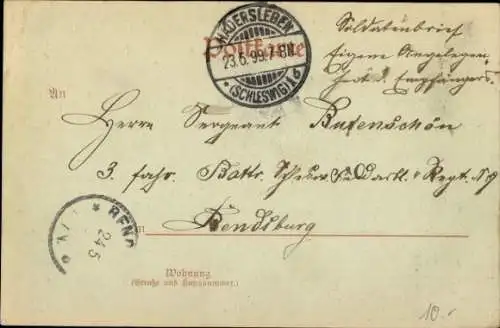 HADERSLEBEN
23.6.99.7-8N.
*(SCHLESWIG)1b
Postkarte
Soldatenbrief
Eigene Angelegen-
heit d. Empfängers.
An
Herrn Sergeant Butenschön
3. fahr. Battr. Schlesw. Feldartl. Regt. N. 9
in
Rendsburg
* REND
24 6
Wohnung
(Straße und Hausnummer.)
10.-